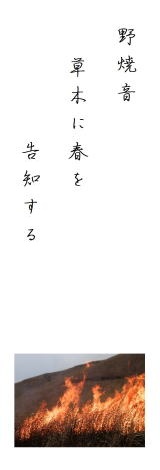 野焼音
草木に春を
告知する